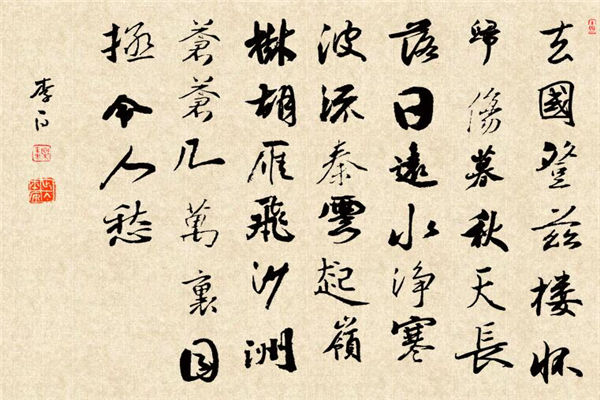 去國登茲楼怀
歸傷暮秋天長
落日遠水净寒
波流秦雲起嶺
樹胡雁飛沙洲
蒼蒼几萬裏目
極令人愁
李白